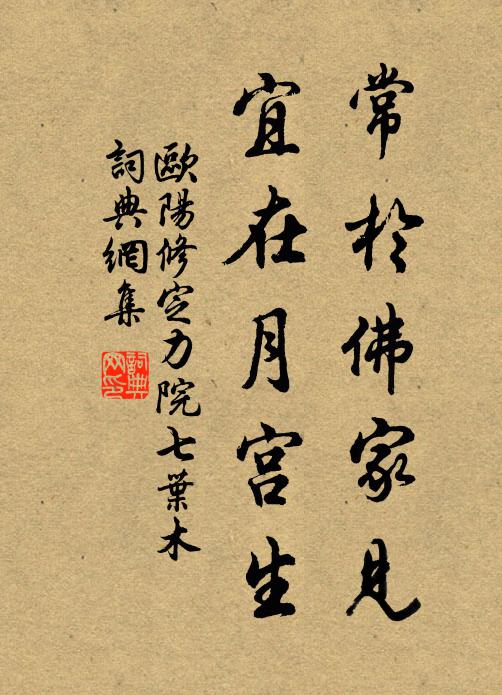 常於佛家見
宜在月宫生
歐陽修定力院七葉木
詞典網集
詞典网印